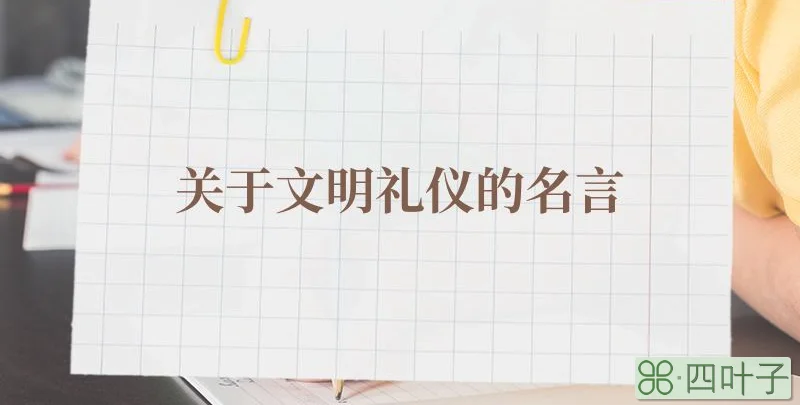 关于文明礼仪的名言
四叶子